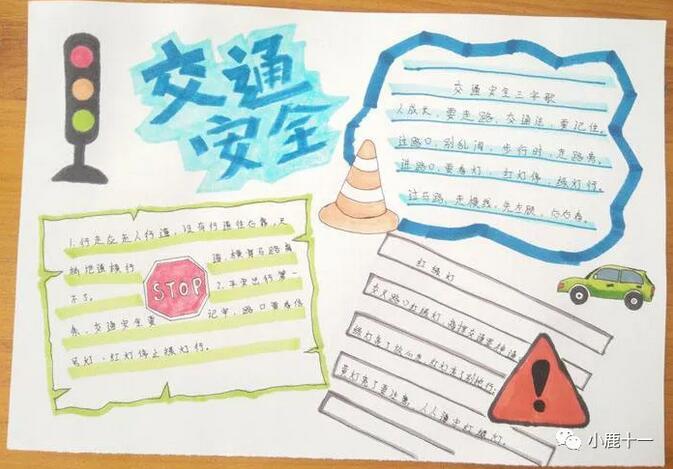 交通
安全
交通安全三字歌
人成长,要走路,交通法,要记住。
过路口,别乱闯,步行时,走路旁。
进路口,要看灯,红灯停,绿灯行。
过马路,走横线,先左顾,后右看。
1.行走应走人行道,没有行道往右靠,天
桥地道横行 道,横穿马路离
不了。 2.平安出行第一
条,交通安全要 记牢,路口要看信
号灯,红灯停止绿灯行。
STOP
红绿灯
交叉路口红绿灯,指挥交通
绿灯亮了放心走,红灯亮了别抢行;
黄灯亮了要注意,人人遵守红绿灯。
小鹿十一